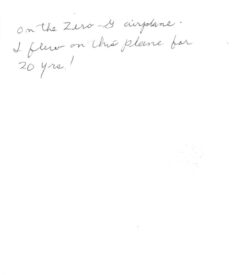 on the Zero-G airplane.
I flew on this plane for
20 yrs!